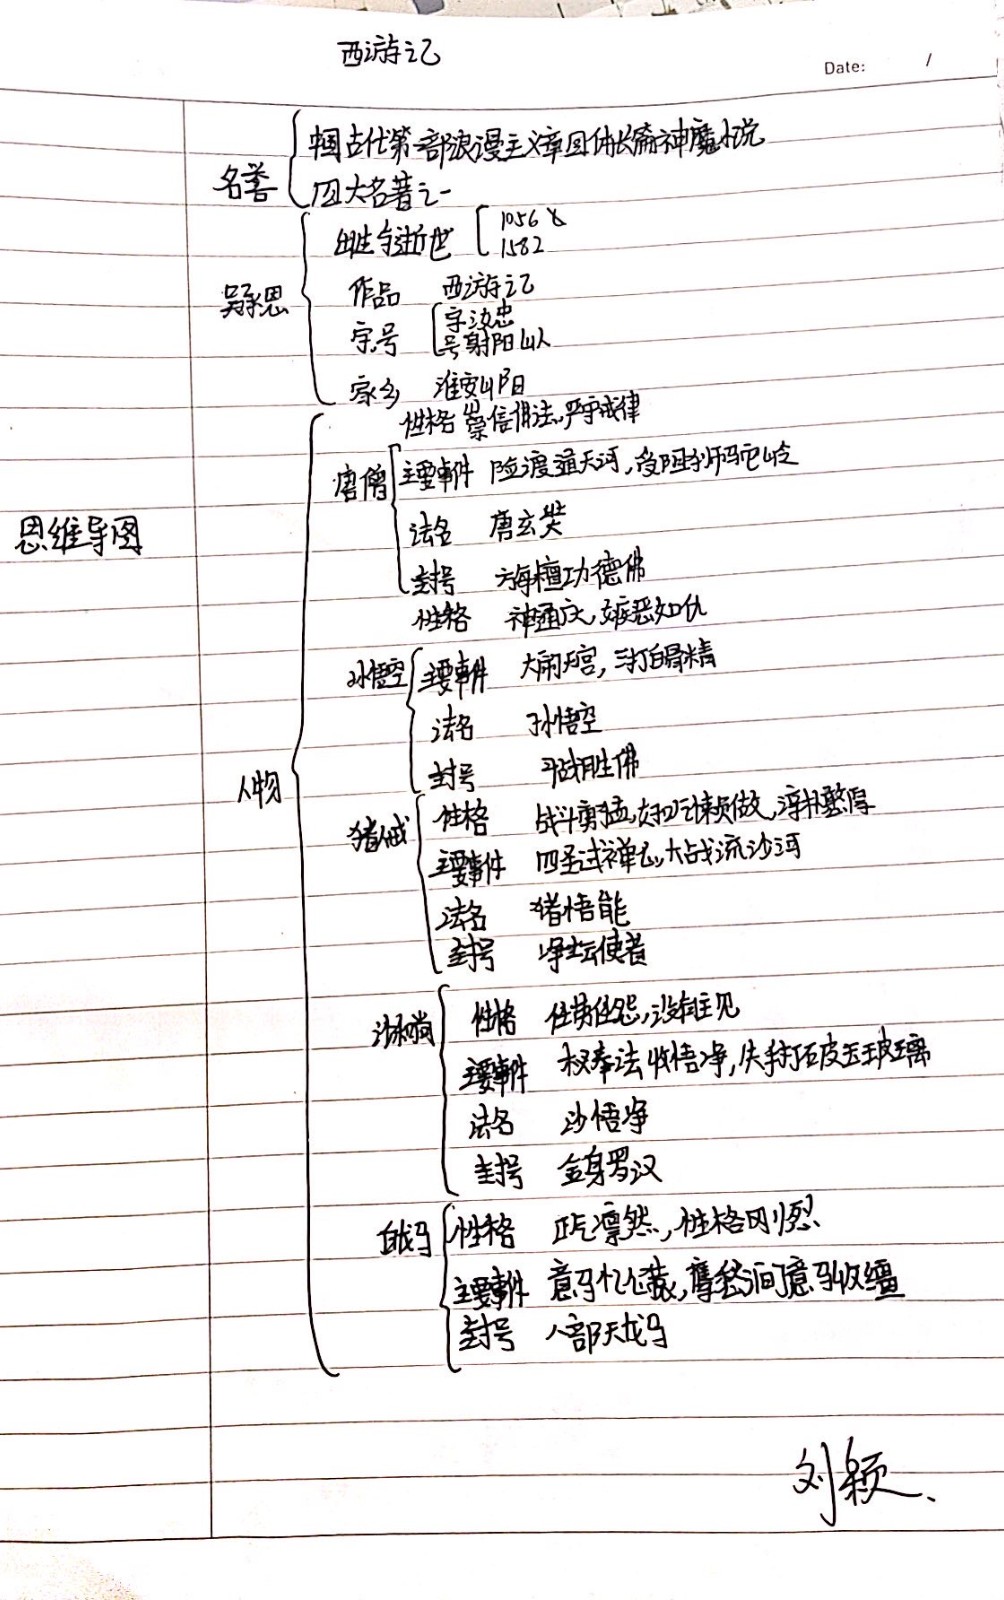 西游记
Date: /
名誉
中国古代第一部浪漫主义章回体长篇神魔小说
四大名著之一
吴承恩
出生与逝世
1056
1582
作品 西游记
字号
字汝忠
号射阳山人
家乡 淮安山阳
思维导图
人物
唐僧
性格 崇信佛法,严守戒律
主要事件 险渡通天河,受阻狮驼岭
法名 唐玄奘
封号 旃檀功德佛
孙悟空
性格 神通广大,嫉恶如仇
主要事件 大闹天宫,三打白骨精
法名 孙悟空
封号 斗战胜佛
猪八戒
性格 战斗勇猛,好吃懒做,淳朴憨厚
主要事件 四圣试禅心,大战流沙河
法名 猪悟能
封号 净坛使者
沙和尚
性格 任劳任怨,没有主见
主要事件 木叉奉法收悟净,失手打破玉玻璃
法名 沙悟净
封号 金身罗汉
白龙马
性格 正气凛然,性格刚烈
主要事件 意马忆心猿,鹰愁涧意马收缰
封号 八部天龙马
刘颖